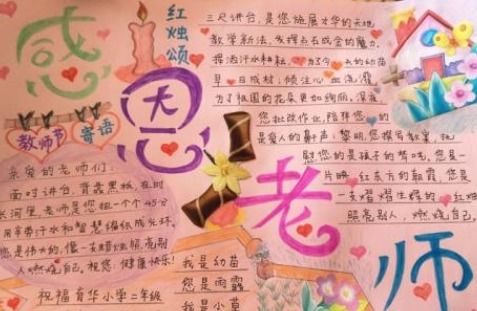 感恩老师
红烛颂
三尺讲台,是您施展才华的天地
教学新法,发挥点石成金的魔力。
挥洒汗水和 为了今 的幼苗
早 日成材;倾注心血浇灌
为了祖国的花朵更加绚丽。深夜,
您批改作业,陪拌您 的
是爱人的鼾声;黎明,您撰写教案,抚
慰您的是孩子的梦呓。您是一
片映红东方的朝霞,您是
一支熠熠生辉的红烛
照亮别人,燃烧自己。
教师节寄语
亲爱的老师们:
面对讲台,背靠黑板,在时
长河里,老师是您把一个个45分
用辛勤汗水和智慧编织成光环。
您是伟大的,像一支蜡烛照亮别
人燃烧自己。祝您:健康快乐!
祝福育华小学二年级
我是幼苗
您是雨露
我是小草